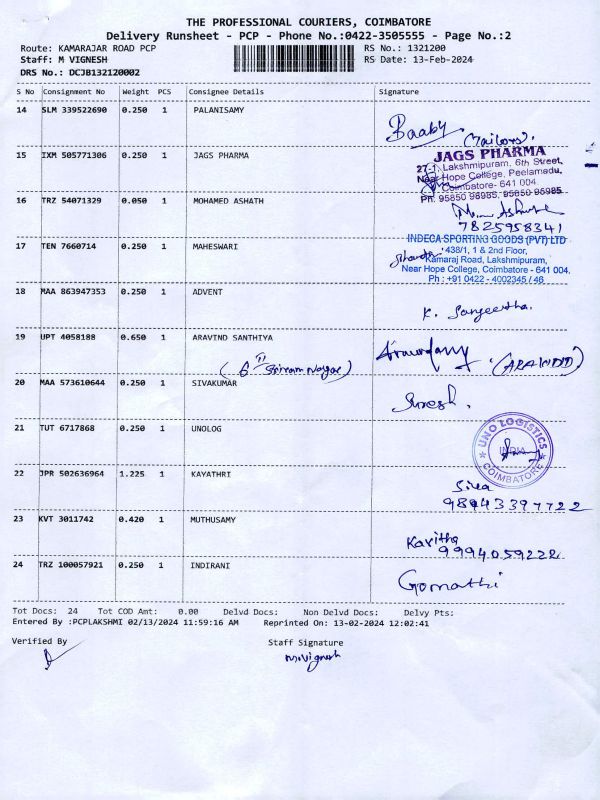 THE PROFESSIONAL COURIERS, COIMBATORE
Delivery Runsheet - PCP - Phone No.:0422-3505555 - Page No.:2
Route: KAMARAJAR ROAD PCP RS No.: 1321200
Staff: M VIGNESH RS Date: 13-Feb-2024
DRS No.: DCJB132120002
S No Consignment No Weight PCS Consignee Details Signature
14 SLM 339522690 0.250 1 PALANISAMY
Baaby
15 IXM 505771306 0.250 1 JAGS PHARMA
JAGS PHARMA
27-1, Lakshmipuram, 6th Street,
Near Hope College, Peelamadu,
Coimbatore- 641 004.
Ph: 95850 96985, 95850 95985
16 TRZ 54071329 0.050 1 MOHAMED ASHATH
7825958341
17 TEN 7660714 0.250 1 MAHESWARI
INDECA SPORTING GOODS (PVT) LTD
438/1, 1 & 2nd Floor,
Kamaraj Road, Lakshmipuram,
Near Hope College, Coimbatore - 641 004.
Ph : +91 0422 - 4002345 / 46
18 MAA 863947353 0.250 1 ADVENT
K. Sangeetha.
19 UPT 4058188 0.650 1 ARAVIND SANTHIYA
(ARAVIND)
20 MAA 573610644 0.250 1 SIVAKUMAR
Suresh.
21 TUT 6717868 0.250 1 UNOLOG
UNO LOGISTICS
INDIA
COIMBATORE
22 JPR 502636964 1.225 1 KAYATHRI
Siva
98943397722
23 KVT 3011742 0.420 1 MUTHUSAMY
Kavitha
9994059222
24 TRZ 100057921 0.250 1 INDIRANI
Gomathi
Tot Docs: 24 Tot COD Amt: 0.00 Delvd Docs: Non Delvd Docs: Delvy Pts:
Entered By :PCPLAKSHMI 02/13/2024 11:59:16 AM Reprinted On: 13-02-2024 12:02:41
Verified By Staff Signature
M.Vignesh